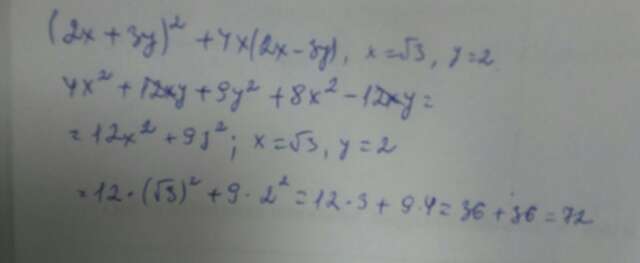 (2x + 3y)² + 4x(2x - 3y), x = √3, y = 2
4x² + 12xy + 9y² + 8x² - 12xy =
= 12x² + 9y²; x = √3, y = 2
= 12 · (√3)² + 9 · 2² = 12 · 3 + 9 · 4 = 36 + 36 = 72